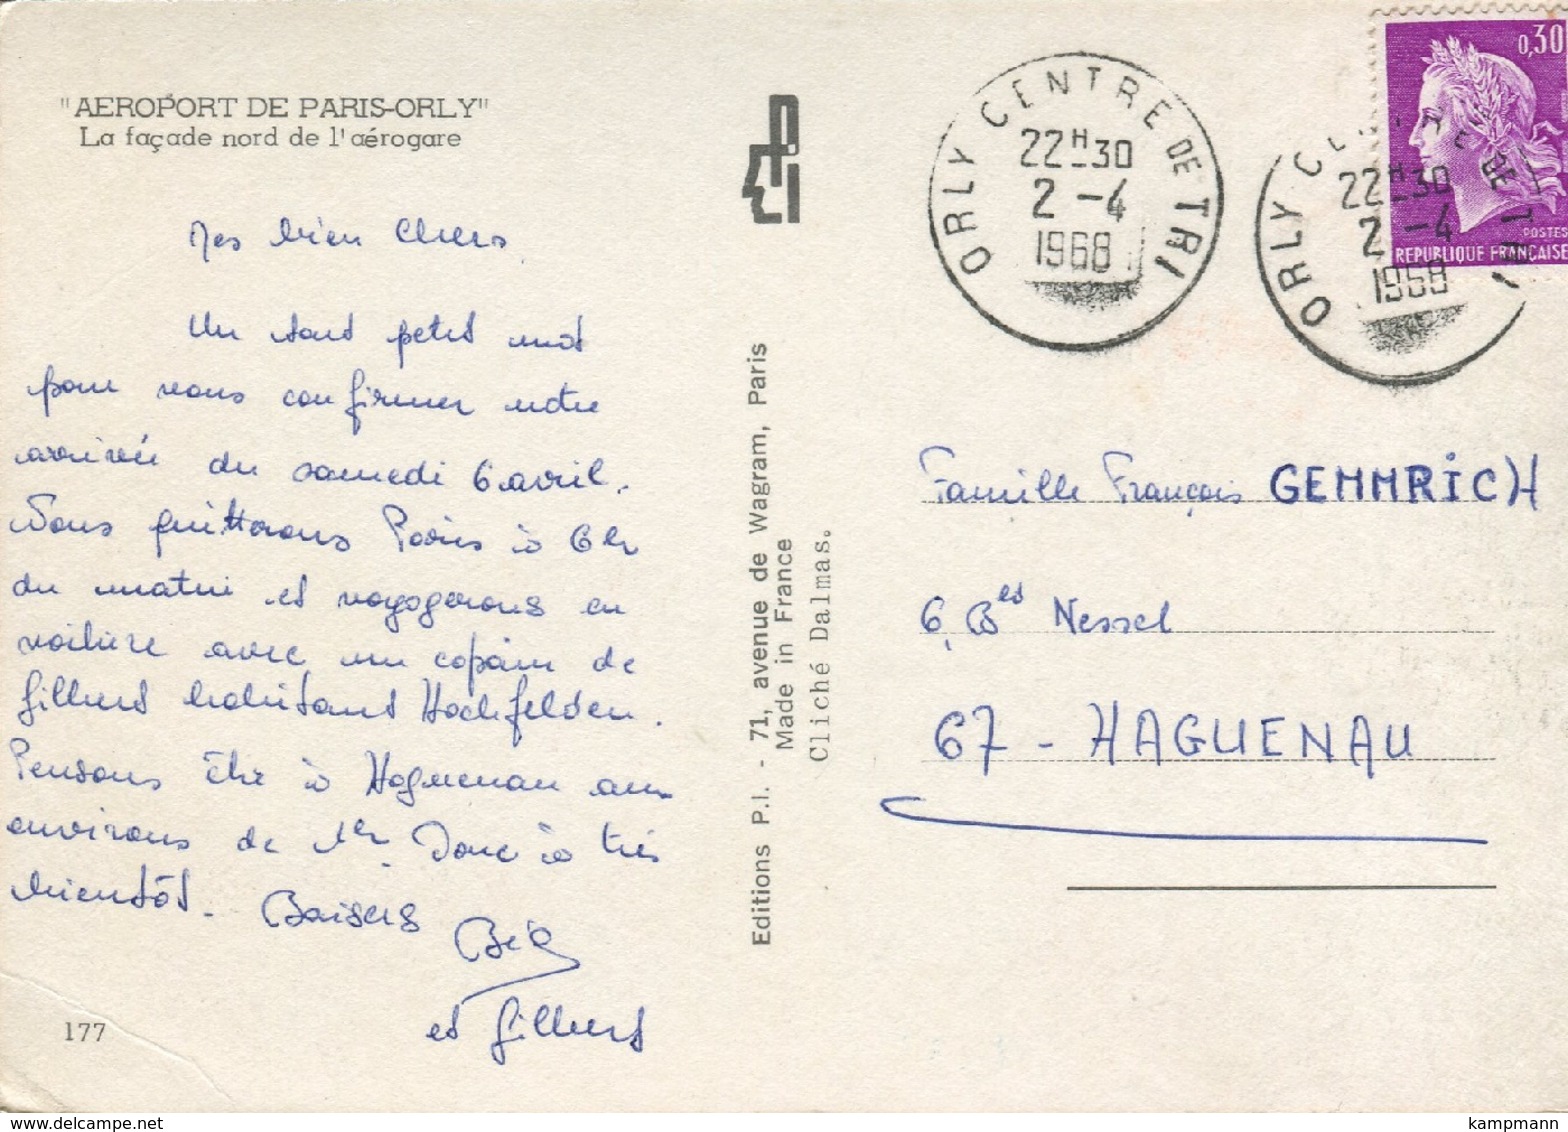 "AEROPORT DE PARIS-ORLY"
La façade nord de l'aérogare
Mes bien Chers
Un tout petit mot
pour vous confirmer notre
arrivée du samedi 6 avril.
Nous quitterons Paris à 6h
du matin et voyagerons en
voiture avec un copain de
Gilbert habitant Hochfelden.
Pensons être à Haguenau aux
environs de 1h. Donc à très
bientôt. Baisers
et Gilbert
177
Editions P.I. - 71, avenue de Wagram, Paris
Made in France
Cliché Dalmas.
ORLY CENTRE DE TRI
22H30
2 -4
1968
ORLY CENTRE DE TRI
22H30
2 -4
1968
0,30
POSTES
REPUBLIQUE FRANÇAISE
Famille François GEMMRICH
6, Bes Nessel
67 - HAGUENAU
kampmann